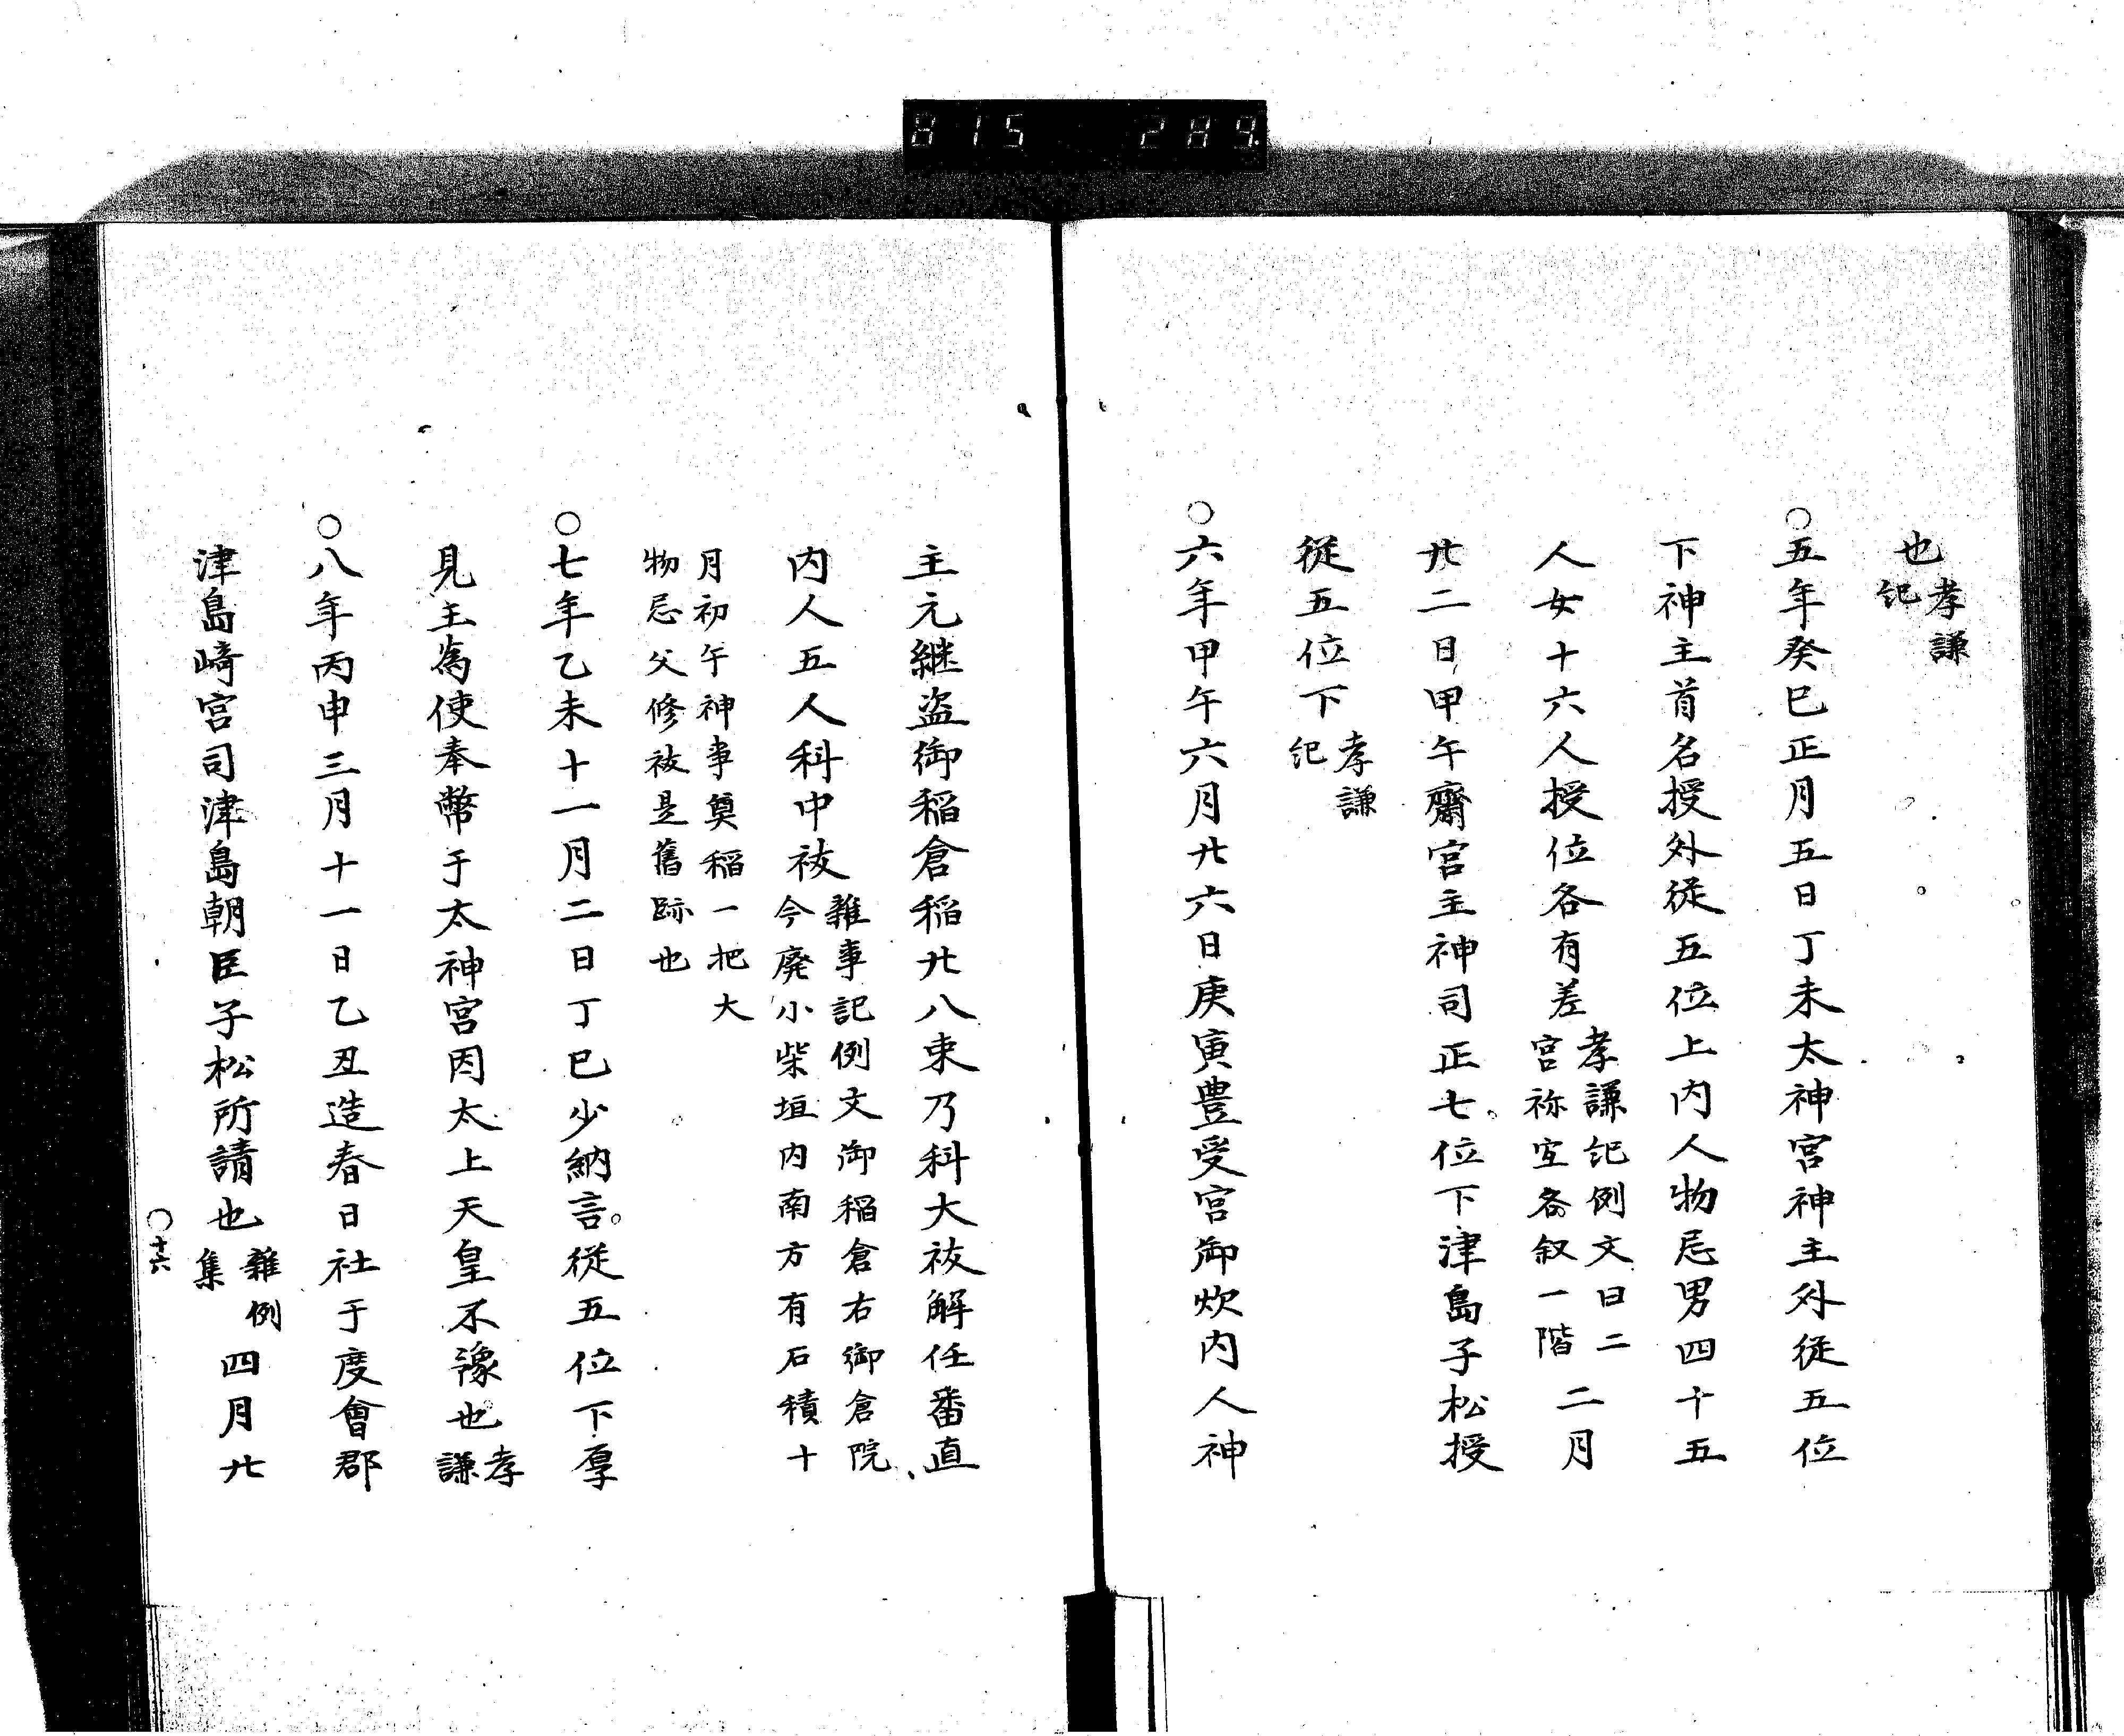 815 289
也孝謙紀
○五年癸巳正月五日丁未太神宮神主外従五位
下神主首名授外従五位上内人物忌男四十五
人女十六人授位各有差孝謙紀例文曰二宮祢宜各叙一階二月
廿二日甲午齋宮主神司正七位下津島子松授
従五位下孝謙紀
○六年甲午六月廿六日庚寅豊受宮御炊内人神
主元継盗御稲倉稲廿八束乃科大祓解任番直
内人五人科中祓雜事記例文御稲倉右御倉院今廃小柴垣内南方有石積十
月初午神事奠稲一把大
物忌父修祓是舊跡也
○七年乙未十一月二日丁巳少納言従五位下厚
見王為使奉幣于太神宮因太上天皇不豫也孝謙
○八年丙申三月十一日乙丑造春日社于度會郡
津島崎宮司津島朝臣子松所請也雜例集四月廿
○十六